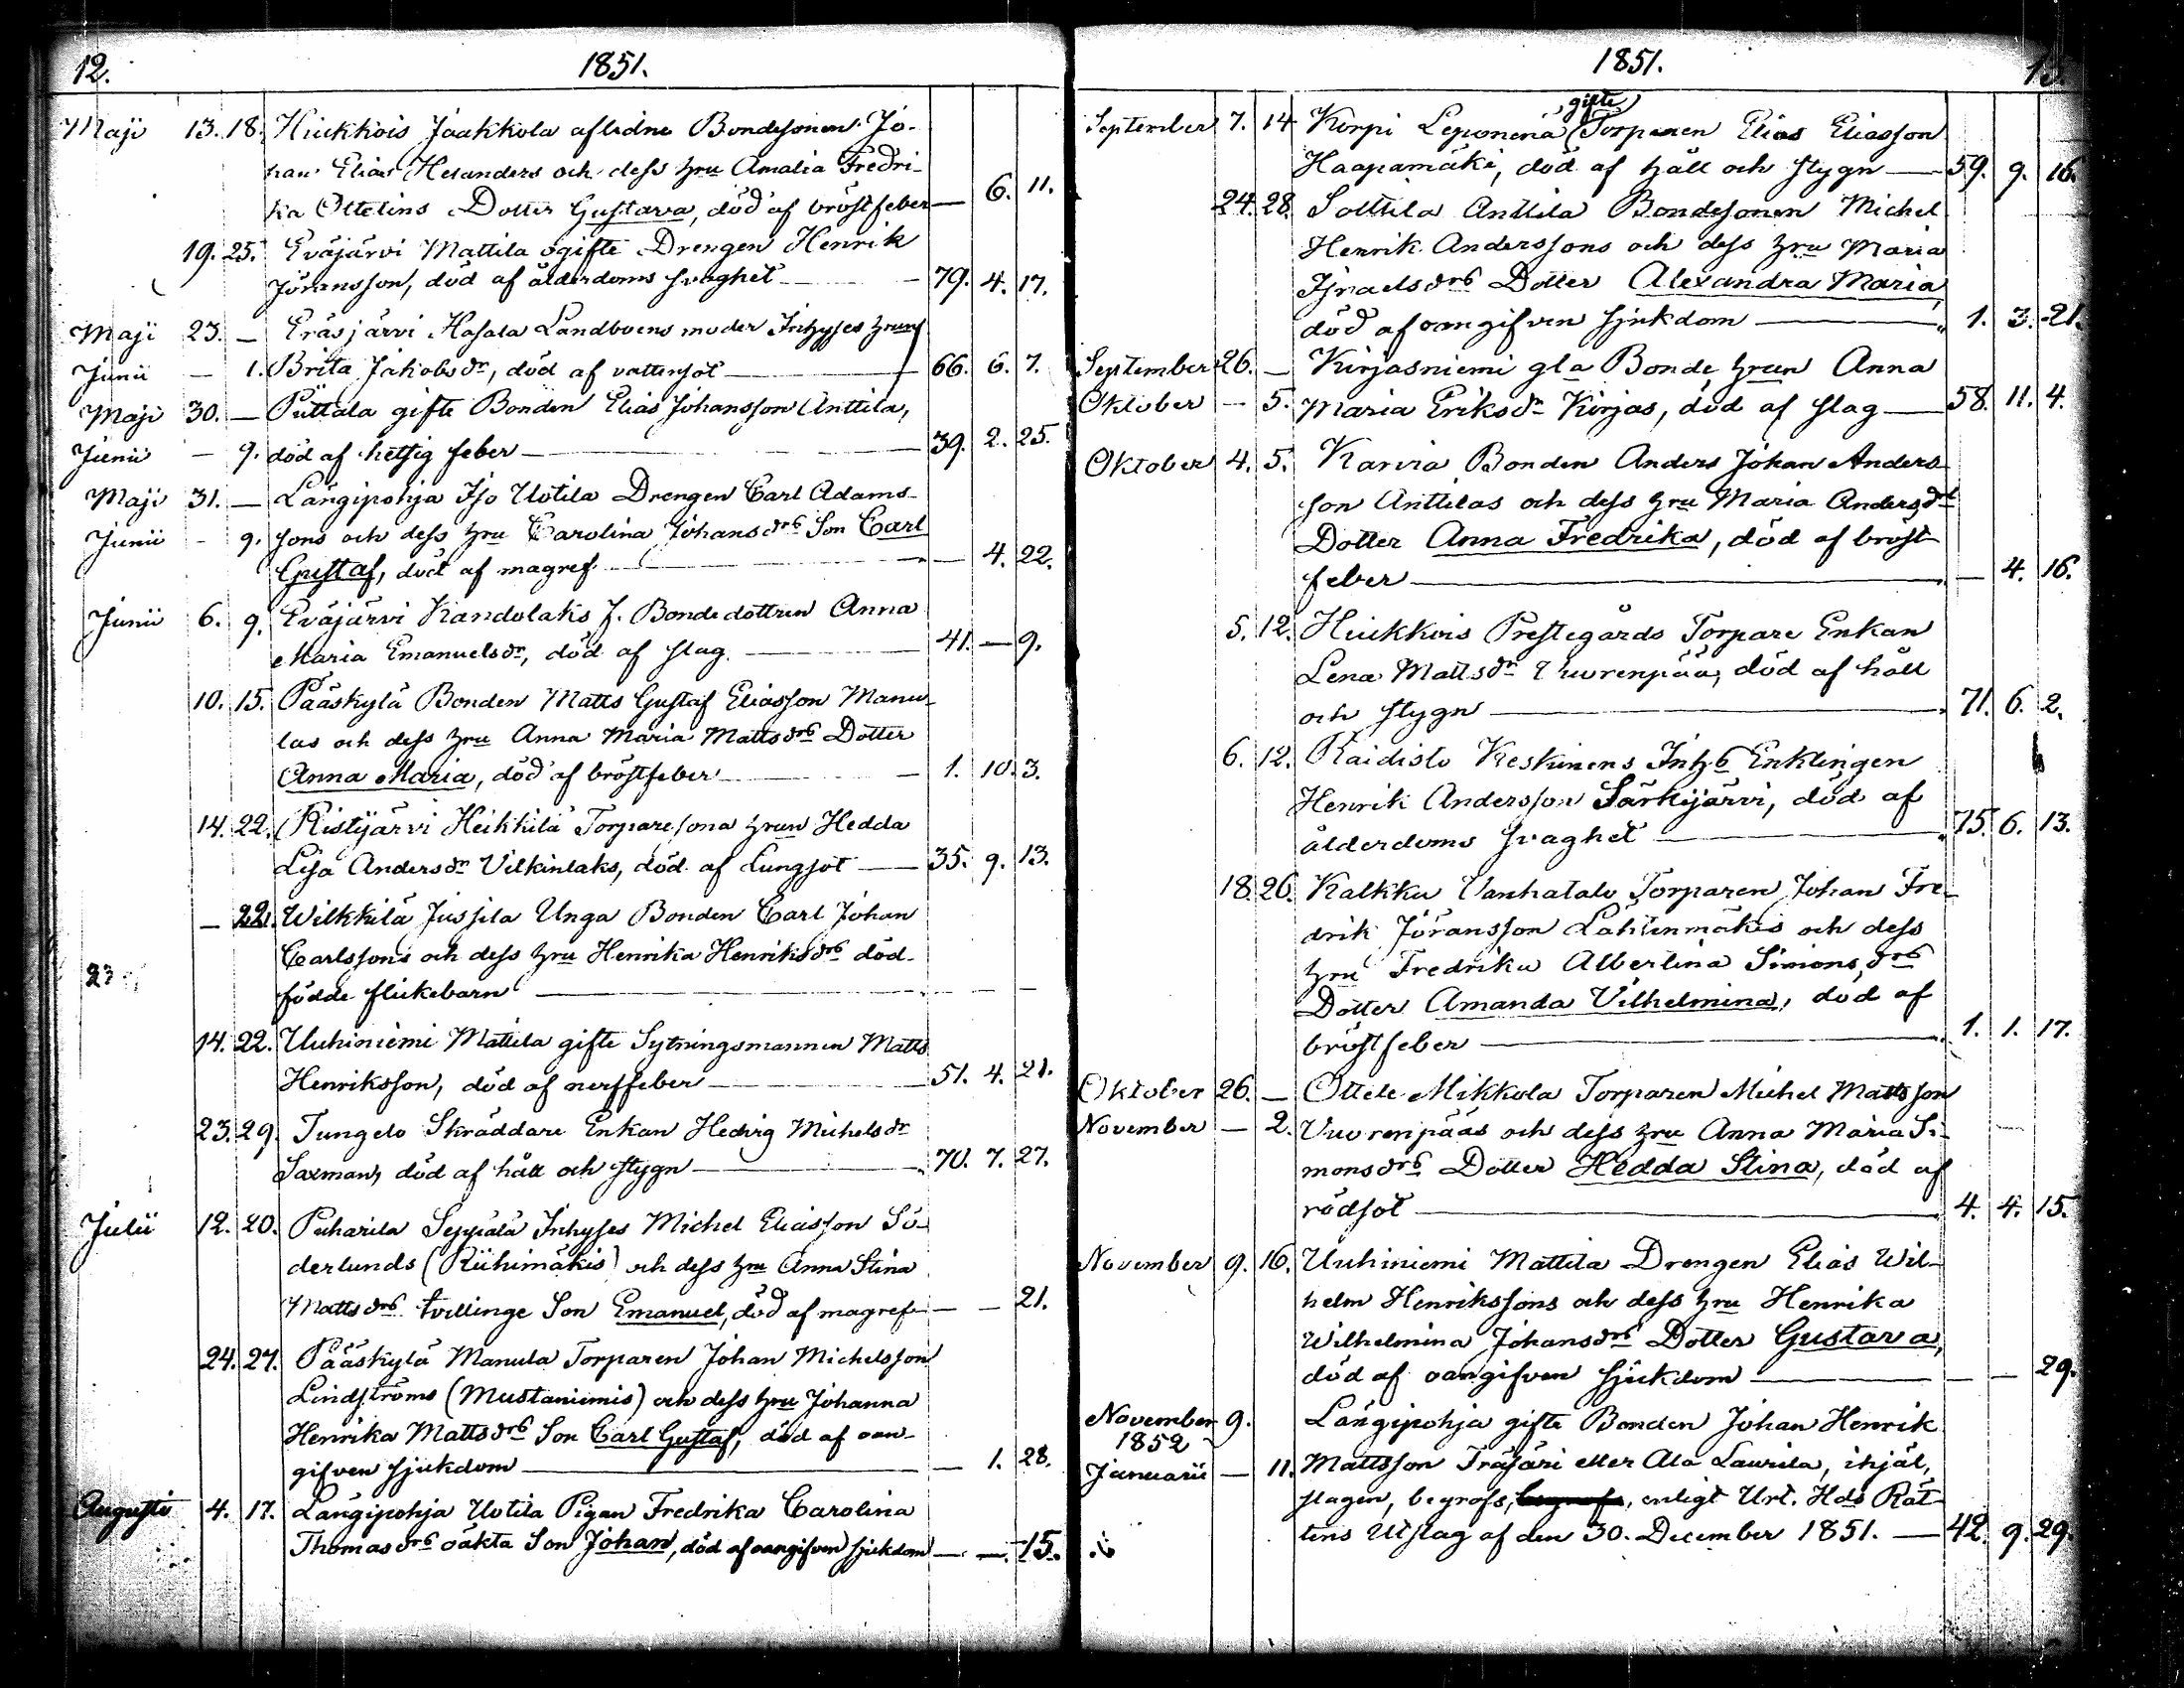 12. 1851.
Maji 13. 18. Hiukkois Jaakkola aflidne Bondesonen Jo-
han Elias Hesanders och dess hru Amalia Fredri-
ka Ottelins Dotter Gustava, död af bröstfeber — 6. 11.
19. 25. Eväjärvi Mattila ogifte Drengen Henrik
Jöransson, död af ålderdoms svaghet — 79. 4. 17.
Maji 23. — Eräsjärvi Hasala Landboens moder Inhyses hrun
Junii — 1. Brita Jakobsdr, död af vattusot — 66. 6. 7.
Maji 30. — Puttala gifte Bonden Elias Johansson Anttila,
Junii — 9. död af hetsig feber — 39. 2. 25.
Maji 31. — Längipohja Iso Uotila Drengen Carl Adams-
Junii - 9. sons och dess hru Carolina Johansdrs Son Carl
Gustaf, död af magref — — 4. 22.
Junii 6. 9. Eväjärvi Kandolaks f. Bondedottren Anna
Maria Emanuelsdr, död af slag — 41. — 9.
10. 15. Pääskylä Bonden Matts Gustaf Eliasson Manu-
las och dess hru Anna Maria Mattsdrs Dotter
Anna Maria, död af bröstfeber — 1. 10. 3.
14. 22. Ristijärvi Heikkilä Torparesona hrun Hedda
Lisa Andersdr Vilkinlaks, död af Lungsot — 35. 9. 13.
— 22. Wilkkilä Jussila Unga Bonden Carl Johan
Carlssons och dess hru Henrika Henriksdrs död-
födde flickebarn — — —
23
14. 22. Uuhiniemi Mattila gifte Sytningsmannen Matts
Henriksson, död af nerffeber — 51. 4. 21.
23. 29. Tungelo Skräddare Enkan Hedvig Michelsdr
Saxman, död af håll och stygn — 70. 7. 27.
Julii 12. 20. Puharila Seppälä Inhyses Michel Eliasson Sö-
derlunds (Riihimäkis) och dess hru Anna Stina
Mattsdrs tvillinge Son Emanuel, död af magref — — 21.
24. 27. Pääskylä Manula Torparen Johan Michelsson
Lindströms (Mustaniemis) och dess hru Johanna
Henrika Mattsdrs Son Carl Gustaf, död af oan-
gifven sjukdom — — 1. 28.
Augusti 4. 17. Längipohja Uotila Pigan Fredrika Carolina
Thomasdrs oäkta Son Johan, död af oangifven sjukdom — — 15.
1851. 13.
September 7. 14. Korpi Leponena gifte Torparen Elias Eliasson
Haapamäki, död af håll och stygn — 59. 9. 16.
24. 28. Solttila Anttila Bondesonen Michel
Henrik Anderssons och dess hru Maria
Israelsdrs Dotter Alexandra Maria,
död af oangifven sjukdom — 1. 3. 21.
September 26. — Kirjasniemi gla Bonde hrun Anna
Oktober — 5. Maria Eriksdr Kirjas, död af slag — 58. 11. 4.
Oktober 4. 5. Karvia Bonden Anders Johan Anders-
son Anttilas och dess hru Maria Andersdrs
Dotter Anna Fredrika, död af bröst-
feber — — 4. 16.
5. 12. Hiukkois Prestegårds Torpare Enkan
Lena Mattsdr Vuorenpää, död af håll
och stygn — 71. 6. 2.
6. 12. Raidisto Keskinens Inhs Enklingen
Henrik Andersson Särkijärvi, död af
ålderdoms svaghet — 75. 6. 13.
18. 26. Kalkku Vanhatalo Torparen Johan Fre-
drik Jöransson Lähtenmäkis och dess
hru Fredrika Albertina Simonsdrs
Dotter Amanda Vilhelmina, död af
bröstfeber — 1. 1. 17.
Oktober 26. — Ottele Mikkola Torparen Michel Mattsson
November — 2. Vuorenpääs och dess hru Anna Maria Si-
monsdrs Dotter Hedda Stina, död af
rödsot — 4. 4. 15.
November 9. 16. Uuhiniemi Mattila Drengen Elias Wil-
helm Henrikssons och dess hru Henrika
Wilhelmina Johansdrs Dotter Gustava,
död af oangifven sjukdom — — — 29.
November 9. Längipohja gifte Bonden Johan Henrik
1852
Januarii — 11. Mattsson Träsäri eller Ala Laurila, ihjäl,
slagen, begrofs, enligt Url. Hds Rät-
tens Utslag af den 30. December 1851. — 42. 9. 29.